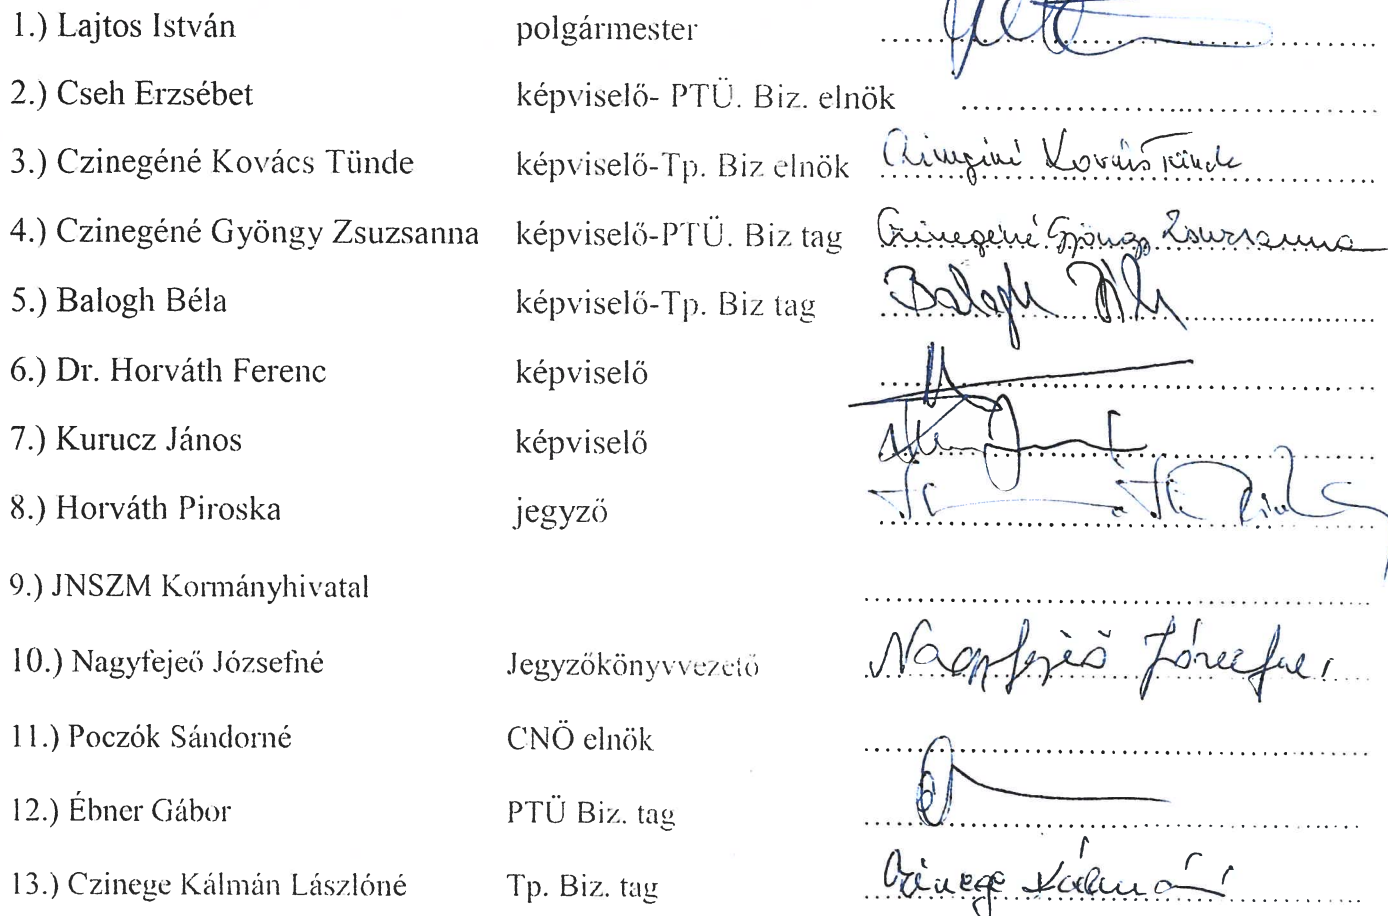 1.) Lajtos István polgármester
2.) Cseh Erzsébet képviselő- PTÜ. Biz. elnök
3.) Czinegéné Kovács Tünde képviselő-Tp. Biz elnök Czinegéné Kovács Tünde
4.) Czinegéné Gyöngy Zsuzsanna képviselő-PTÜ. Biz tag Czinegéné Gyöngy Zsuzsanna
5.) Balogh Béla képviselő-Tp. Biz tag Balogh Béla
6.) Dr. Horváth Ferenc képviselő
7.) Kurucz János képviselő
8.) Horváth Piroska jegyző
9.) JNSZM Kormányhivatal
10.) Nagyfejeő Józsefné Jegyzőkönyvvezető Nagyfejeő Józsefné
11.) Poczók Sándorné CNÖ elnök
12.) Ébner Gábor PTÜ Biz. tag
13.) Czinege Kálmán Lászlóné Tp. Biz. tag Czinege Kálmán